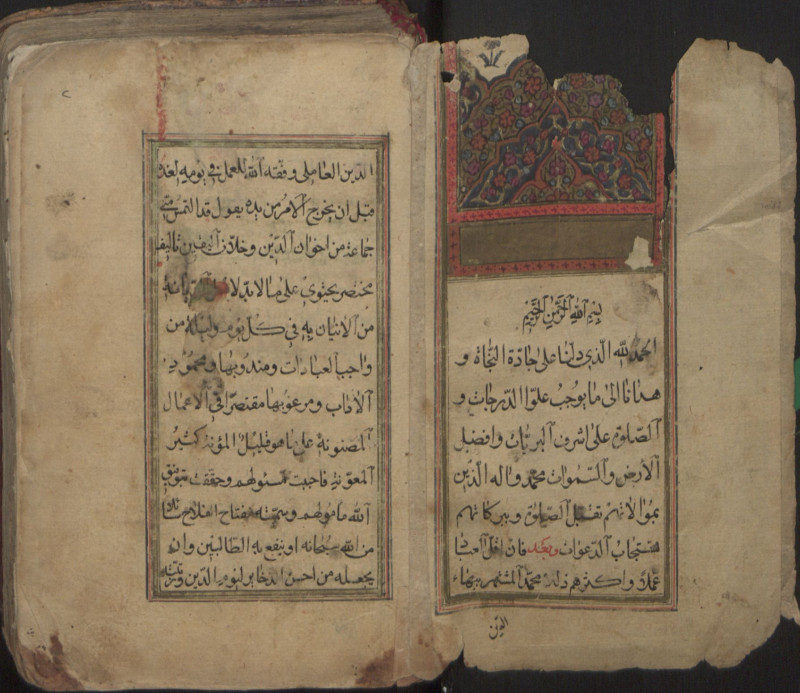 بسم الله الرحمن الرحيم
الحمد لله الذي دلنا على جادة النجاة و
هدانا الى ما يوجب علو الدرجات و
الصلوة على اشرف البريات وافضل
الارض والسموات محمد واله الذين
بموالاتهم تقبل الصلوة وببركاتهم
تستجاب الدعوات وبعد فان اقل العباد
عملا واكثرهم زللا محمد المشتهر ببهاء
الدين
الدين العاملي وفقه الله للعمل في يومه لغده
قبل ان يخرج الامر من يده يقول قد التمس مني
جماعة من اخوان الدين وخلان اليقين تاليف
مختصر يحتوي على ما لابد لاهل الديانة
من الاتيان به في كل يوم وليلة من
واجب العبادات ومندوبها ومحمود
الاداب ومرغوبها مقتصرا في الاعمال
المسنونة على ما هو قليل المؤنة كثير
المعونة فاجبت مسئولهم وحققت بتوفيق
الله مامولهم وسميته مفتاح الفلاح سائلا
من الله سبحانه ان ينفع به الطالبين وان
يجعله من احسن الذخاير ليوم الدين ورتبته